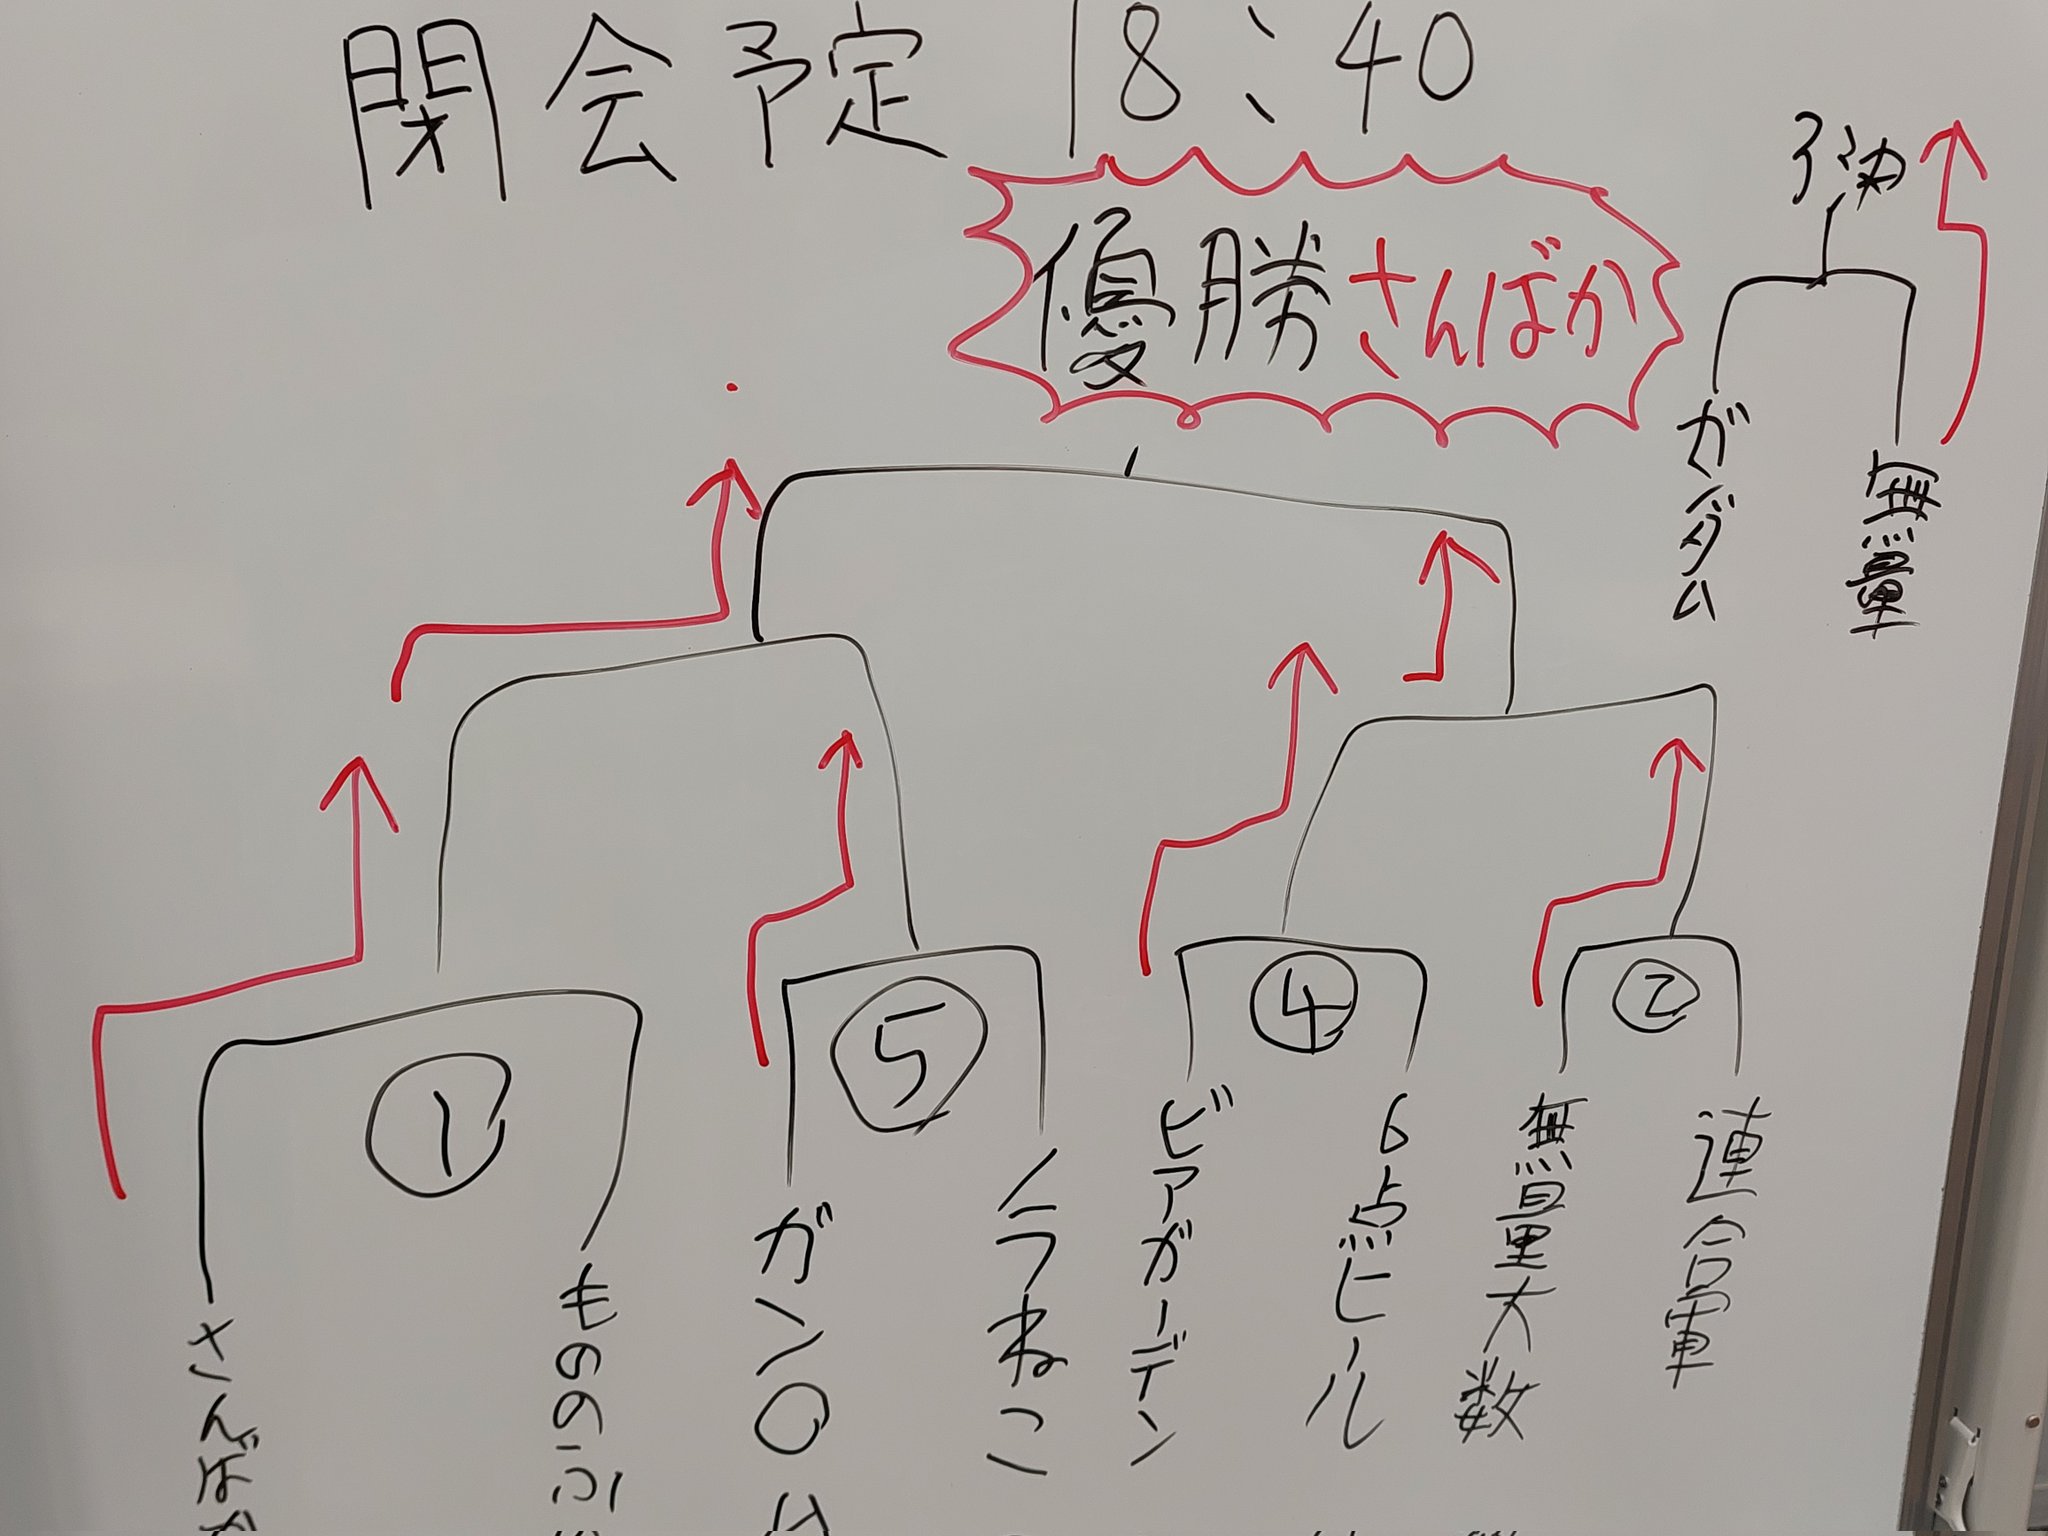 閉会予定 18:40
3決
優勝さんばか
ガンダム
無量
①
⑤
④
②
さんばか
もののふ
ガン〇ム
ノラねこ
ビアガーデン
6点ヒール
無量大数
連合軍